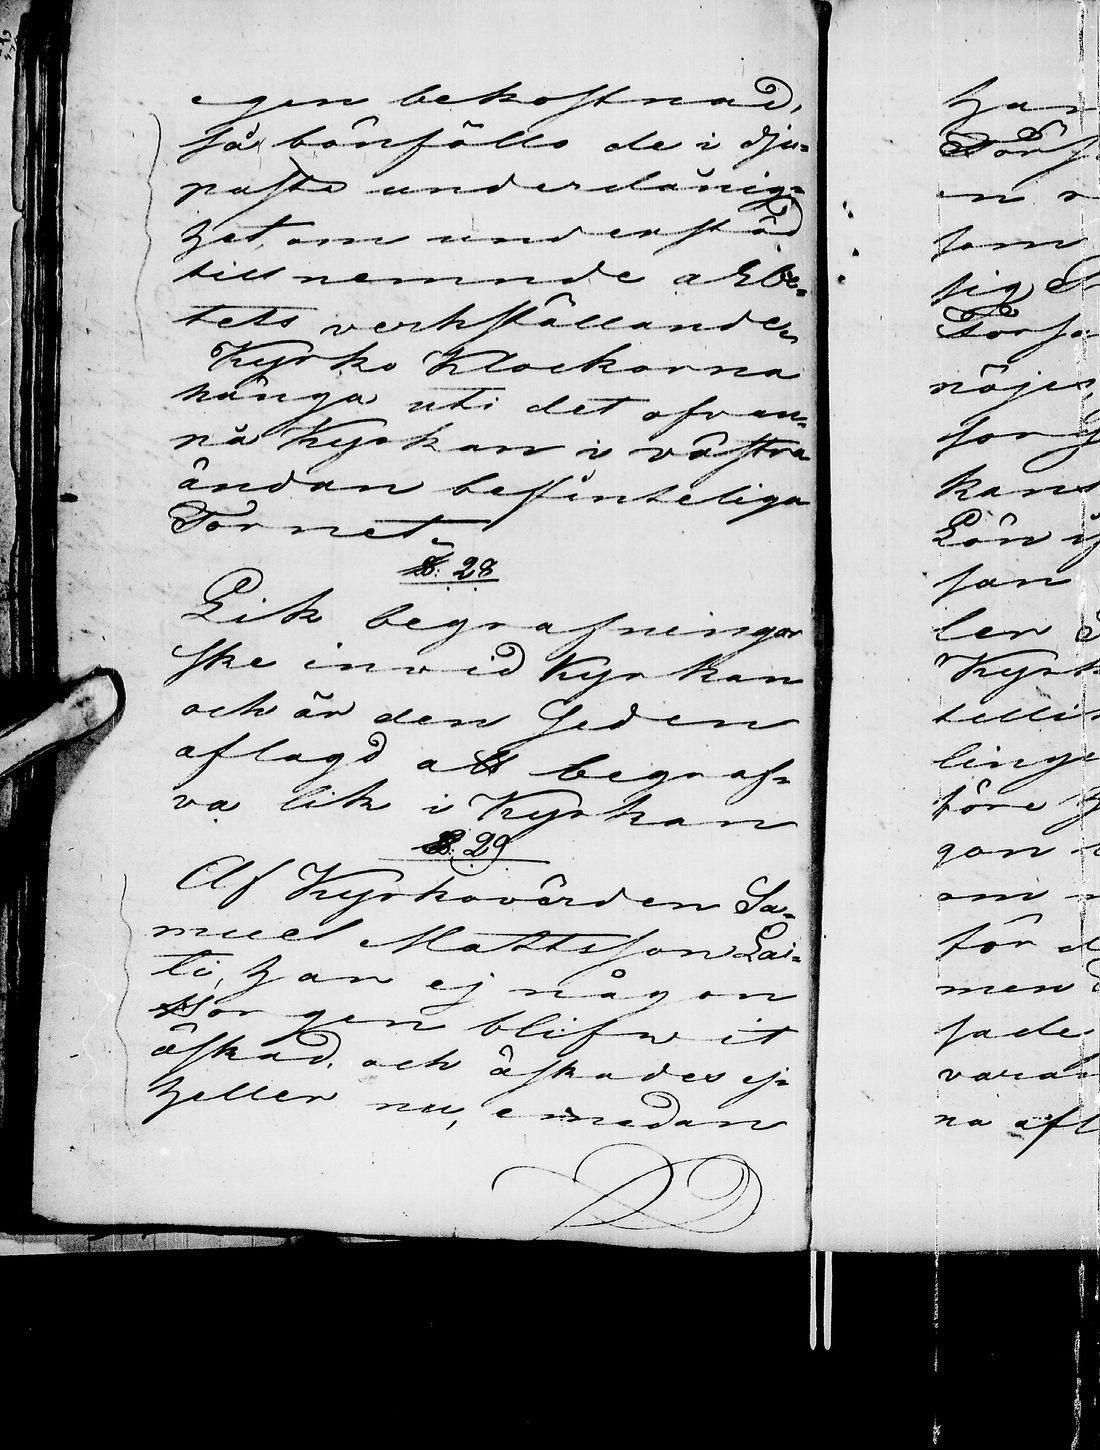 egen bekostnad,
så bönfölls de i dju-
paste underdånig-
het, om understöd
till nemnde arbe-
tets verkställande.
Kyrko Klockorna
hänga uti det ofvan-
på Kyrkan i västra
ändan befinteliga
Tornet
§. 28
Lik begrafningar
ske invid Kyrkan
och är den Seden
aflagd att begraf-
va lik i Kyrkan
§. 29
Af Kyrkovärden Sa-
muel Mattsson Lai-
ti, har ej någon
borgen blifwit
äskad, och äskades ej
heller nu, emedan
har
Försa
en
som
sig
Försa
nöjes
sorg
kans
Lön
san
ler
Kyrk
telli
linge
före
gon
om
för
men
sade
vara
na aft